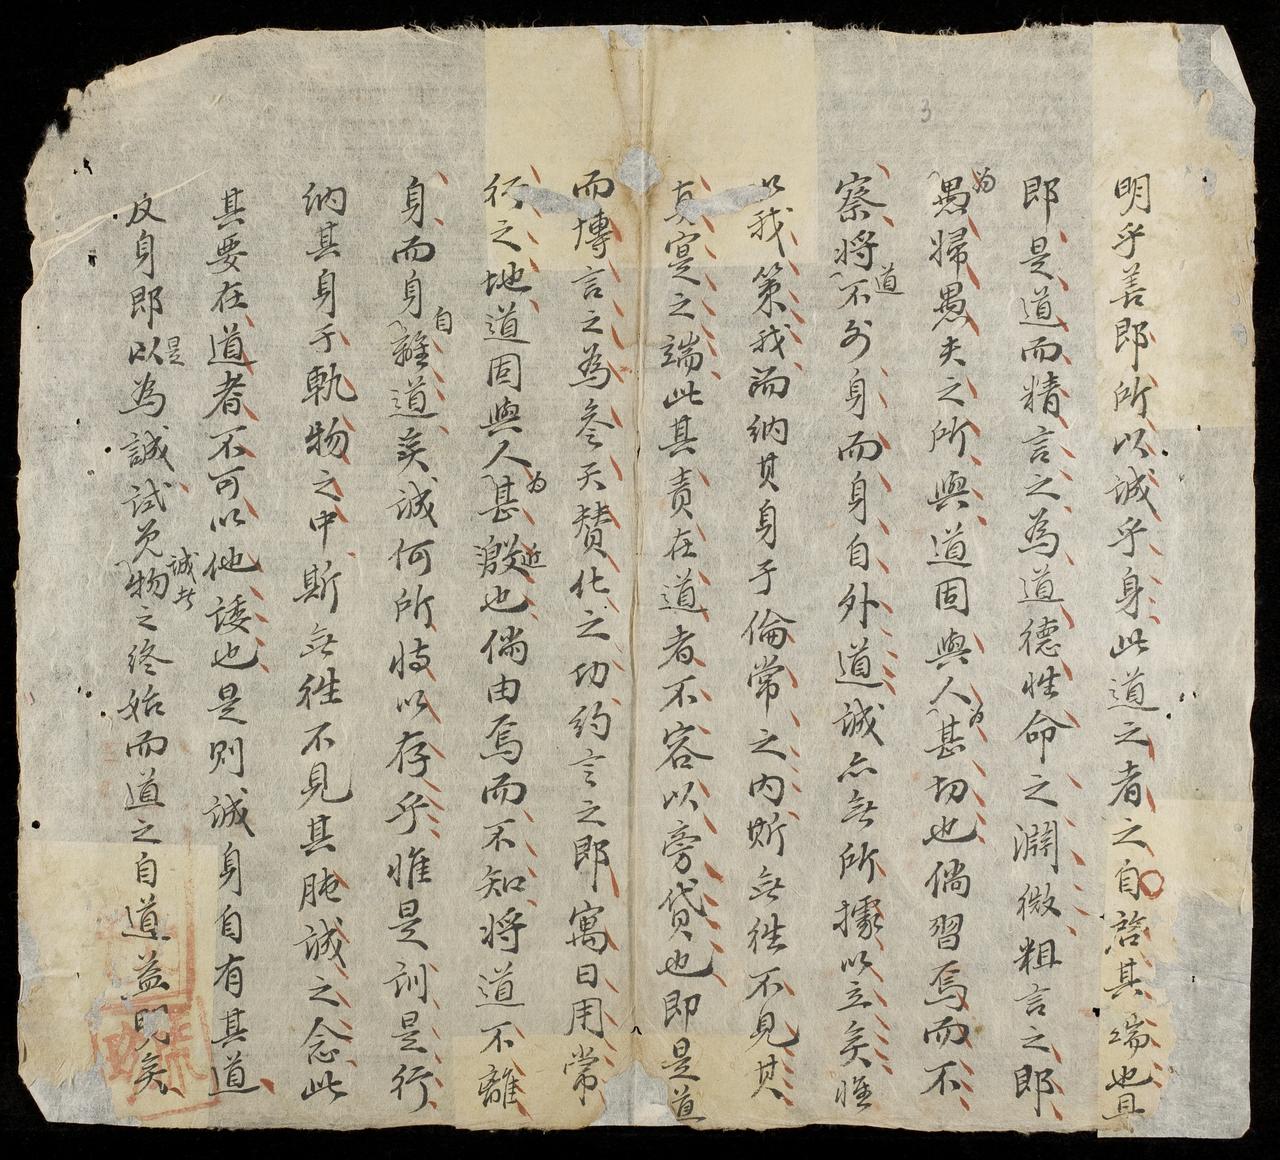 3
明乎善即所以誠乎身此道之者之自啓其端也且
即是道而精言之為道德性命之淵微粗言之即
愚婦愚夫之所與道固與人甚切也倘習焉而不
為
為
察將不外身而身自外道誠亦無所據以立矣惟
道
以我策我而納其身于倫常之内斯無往不見其
真寔之端此其責在道者不容以旁貸也即是道
而慱言之為參天賛化之功約言之即寓日用常
行之地道固與人甚澈也倘由焉而不知將道不離
为
近
身而身離道矣誠何所恃以存乎惟是訓是行
自
納其身于軌物之中斯無往不見其肫誠之念此
其要在道者不可以他諉也是則誠身自有其道
反身即以為誠試克物之終始而道之自道益明矣
是
誠者